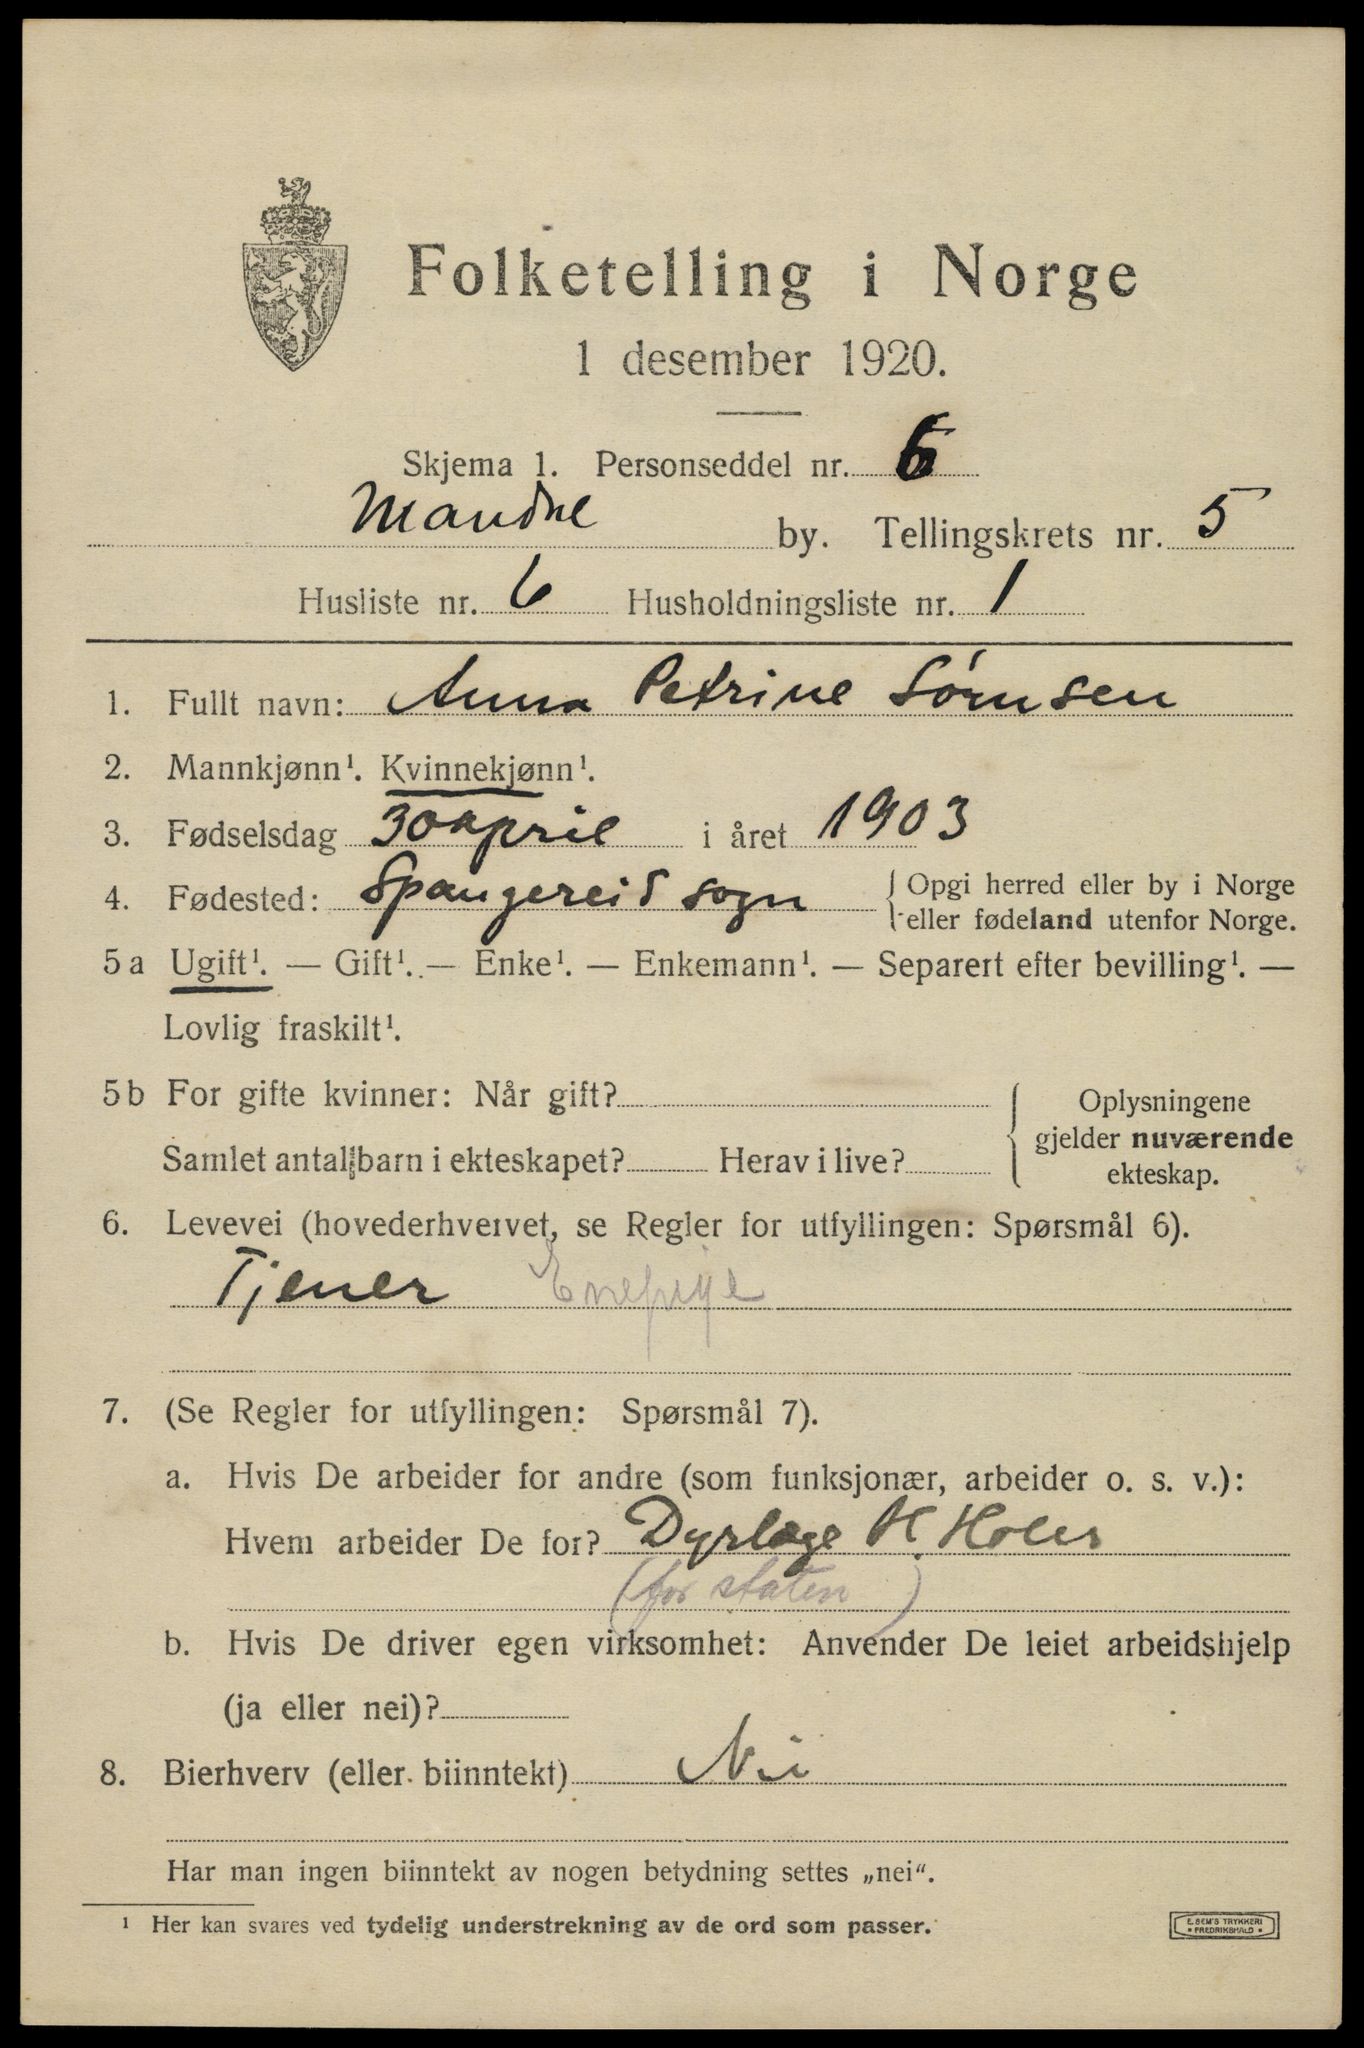 Folketelling i Norge
1 desember 1920.
Skjema 1. Personseddel nr. 6
Mandal by. Tellingskrets nr. 5
Husliste nr. 6 Husholdningsliste nr. 1
1. Fullt navn: Anna Petrine Sørnsen
2. Mannkjønn¹. Kvinnekjønn¹.
3. Fødselsdag 30 april i året 1903
4. Fødested: Spangereid sogn { Opgi herred eller by i Norge
eller fødeland utenfor Norge.
5a Ugift¹. — Gift¹. — Enke¹. — Enkemann¹. — Separert efter bevilling¹. —
Lovlig fraskilt¹.
5b For gifte kvinner: Når gift?
Samlet antall barn i ekteskapet? Herav i live?
Oplysningene
gjelder nuværende
ekteskap.
6. Levevei (hovederhvervet, se Regler for utfyllingen: Spørsmål 6).
Tjener Enepige
7. (Se Regler for utfyllingen: Spørsmål 7).
a. Hvis De arbeider for andre (som funksjonær, arbeider o. s. v.):
Hvem arbeider De for? Dyrlæge H. Holm
(for staten)
b. Hvis De driver egen virksomhet: Anvender De leiet arbeidshjelp
(ja eller nei)?
8. Bierhverv (eller biinntekt) Nei
Har man ingen biinntekt av nogen betydning settes „nei“.
¹ Her kan svares ved tydelig understrekning av de ord som passer.
E. SEM'S TRYKKERI
FREDRIKSHALD